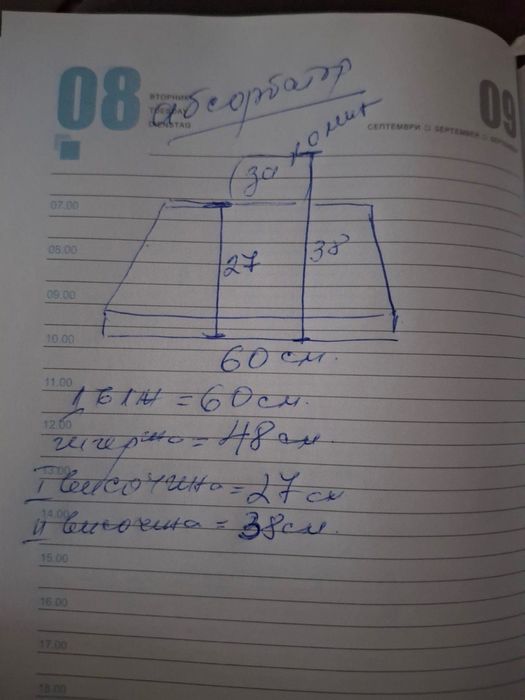 08
ВТОРНИК
TUESDAY
DIENSTAG
абсорбатор
09
СЕПТЕМВРИ □ SEPTEMBER □ SEPTEMBER
за комин
07.00
08.00
27
38
09.00
10.00
60 см.
11.00
дълж = 60 см.
12.00
ширина = 48 см.
13.00
I височина = 27 см
14.00
II височина = 38 см.
15.00
16.00
17.00
18.00